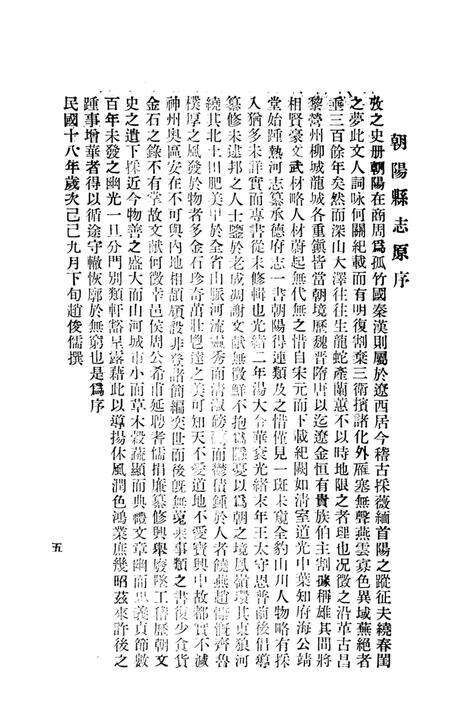 朝陽縣志原序
攷之史册朝陽在商周爲孤竹國秦漢則屬於遼西居今稽古採薇緬首陽之蹤征夫繞春閨
之夢此文人詞咏何關紀載而有明復割棄三衛擯諸化外雁塞無聲燕雲寡色異域蕪絕者
垂三百餘年矣然而深山大澤往往生龍蛇產蘭蕙不以時地限之者理也況徵之沿革古昌
黎營州柳城龍城各重鎭皆當朝境歷魏晉隋唐以迄遼金恒有貴族伯主割據稱雄其間將
相賢豪文武材略人材蔚起無代無之惜自宋元而下載紀闕如淸室道光中葉知府海公靖
堂始踵熱河志纂承德府志一書朝陽得連類及之惜僅見一斑未窺全豹山川人物略有採
入猶多未詳實而專書從未修輯也光緒二年湯大令華袞光緒末年王太守恩普前後倡導
纂修未逮邦之人士鑒於老成凋謝文獻無徵鮮不抱爲隱憂以爲朝之境鳳嶺環其東狼河
繞其北土田肥美甲於全省山脈河流靈秀而淸淑磅礴而鬱積鍾於人者饒燕趙慷慨齊魯
樸厚之風發於物者多金石珍奇萬壯邕達之美可知天不愛道地不愛寶興中故都實不減
神州奧區安在不可與內地相頡頏設非登諸簡編奕世而後旣無蒐來事類之書復少食貨
金石之錄不有掌故文獻何徵幸邑侯周公希甫延聘者儒捐廉纂修興舉廢墜工稽歷朝文
史之遺下採近今物善之盛大而山河城市小而草木穀蔬顯而典禮文章幽而忠義貞節數
百年未發之幽光一旦分門別類軒豁呈露藉此以導揚休風潤色鴻業庶幾昭茲來許後之
踵事增華者得以循途守轍恢廓於無窮也是爲序
民國十八年歲次己巳九月下旬趙俊儒撰
五